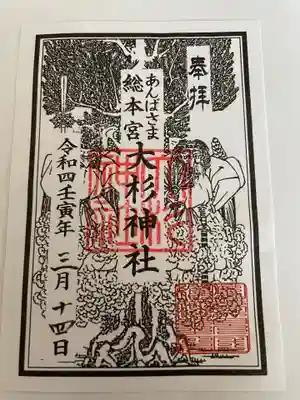 奉拝
あんばさま
総本宮
大杉神社
令和四壬寅年 三月十四日